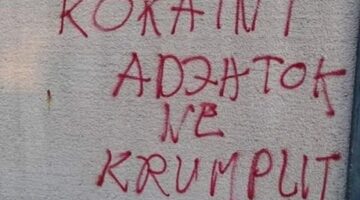 KOKAINT
ADJATOK
NE
KRUMPLIT